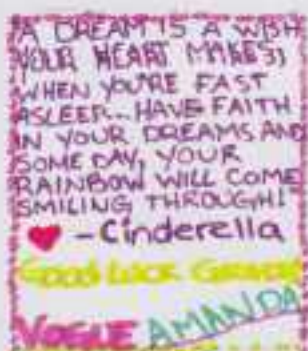 "A DREAM IS A WISH
YOUR HEART MAKES,
WHEN YOU'RE FAST
ASLEEP... HAVE FAITH
IN YOUR DREAMS AND
SOME DAY, YOUR
RAINBOW WILL COME
SMILING THROUGH!"
- Cinderella
GOOD LUCK
VOGUE AMANDA